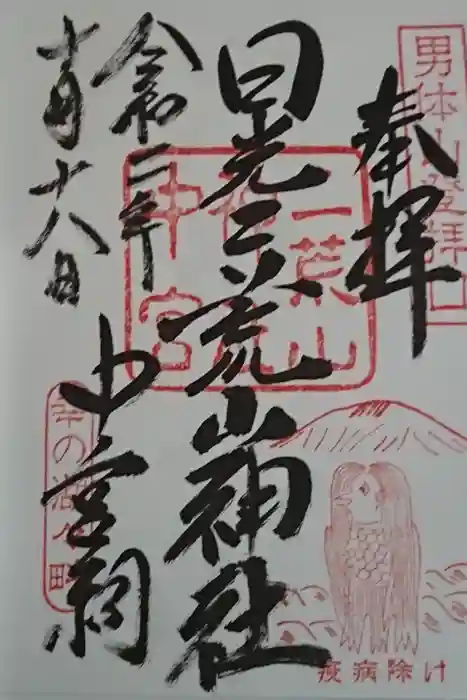 奉拝
男体山登拝口
日光二荒山神社
二荒山神社中宮
中宮祠
令和二年
十月十八日
疫病除け